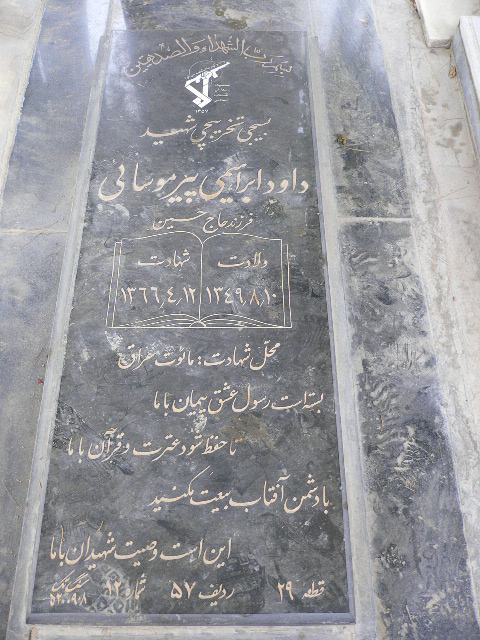 بسم رب الشهداء والصدیقین
۱۳۵۷
بسیجی تخریبچی شهید
داود ابراهیمی پیرموسائی
فرزند حاج حسین
ولادت شهادت
۱۳۴۹٫۸٫۱۰ ۱۳۶۶٫۴٫۱۲
محل شهادت: مائوت عراق
بسته است رسول عشق پیمان با ما
تا حفظ شود عترت و قرآن با ما
با دشمن آفتاب بیعت مکنید
این است وصیت شهیدان با ما
قطعه ۲۹ ردیف ۵۷ شماره ۱۲